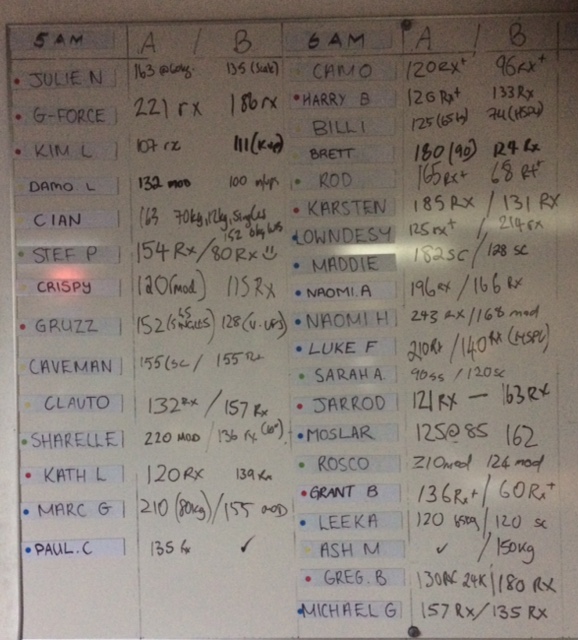 5 AM A / B
JULIE N 163 @60kg. 135 (Sub)
G-FORCE 221 rx 186 rx
KIM L 107 rx 111
DAMO L 132 mod 100
CIAN 163 70kg, 12kg, singles
STEF P 154 Rx / 80 Rx
CRISPY 120 (mod) 115 Rx
GRUZZ 152 (SINGLES) 128 (V-UPS)
CAVEMAN 155 (sc / 155 Rx
CLAUTO 132 Rx / 157 Rx
SHARELLE 220 MOD / 136 rx
KATH L 120 RX 139 Rx
MARC G 210 (80kg) / 155 MOD
PAUL.C 135 Rx ✓
6 AM A / B
CAMO 120 RX+ 96 RX+
HARRY B 126 Rx+ 133 Rx
BILLI 125 (65kg) 74 (HSPU)
BRETT 180 (90) 124 Rx
ROD 165 Rx+ 68 Rx+
KARSTEN 185 RX / 131 RX
LOWNDESY 125 rx+ / 214 rx
MADDIE 182 SC / 128 SC
NAOMI.A 196 Rx / 166 Rx
NAOMI H 243 RX / 168 mod
LUKE F 210 Rx / 140 RX (HSPU)
SARAH A. 90 ss / 120 sc
JARROD 121 RX — 163 Rx
MOSLAR 125 @ 85 162
ROSCO 210 mod 124 mod
GRANT B 136 Rx+ / 60 Rx+
LEEKA 120 65kg / 120 sc
ASH M ✓ / 150kg
GREG.B 130 24K / 180 RX
MICHAEL G 157 RX / 135 RX